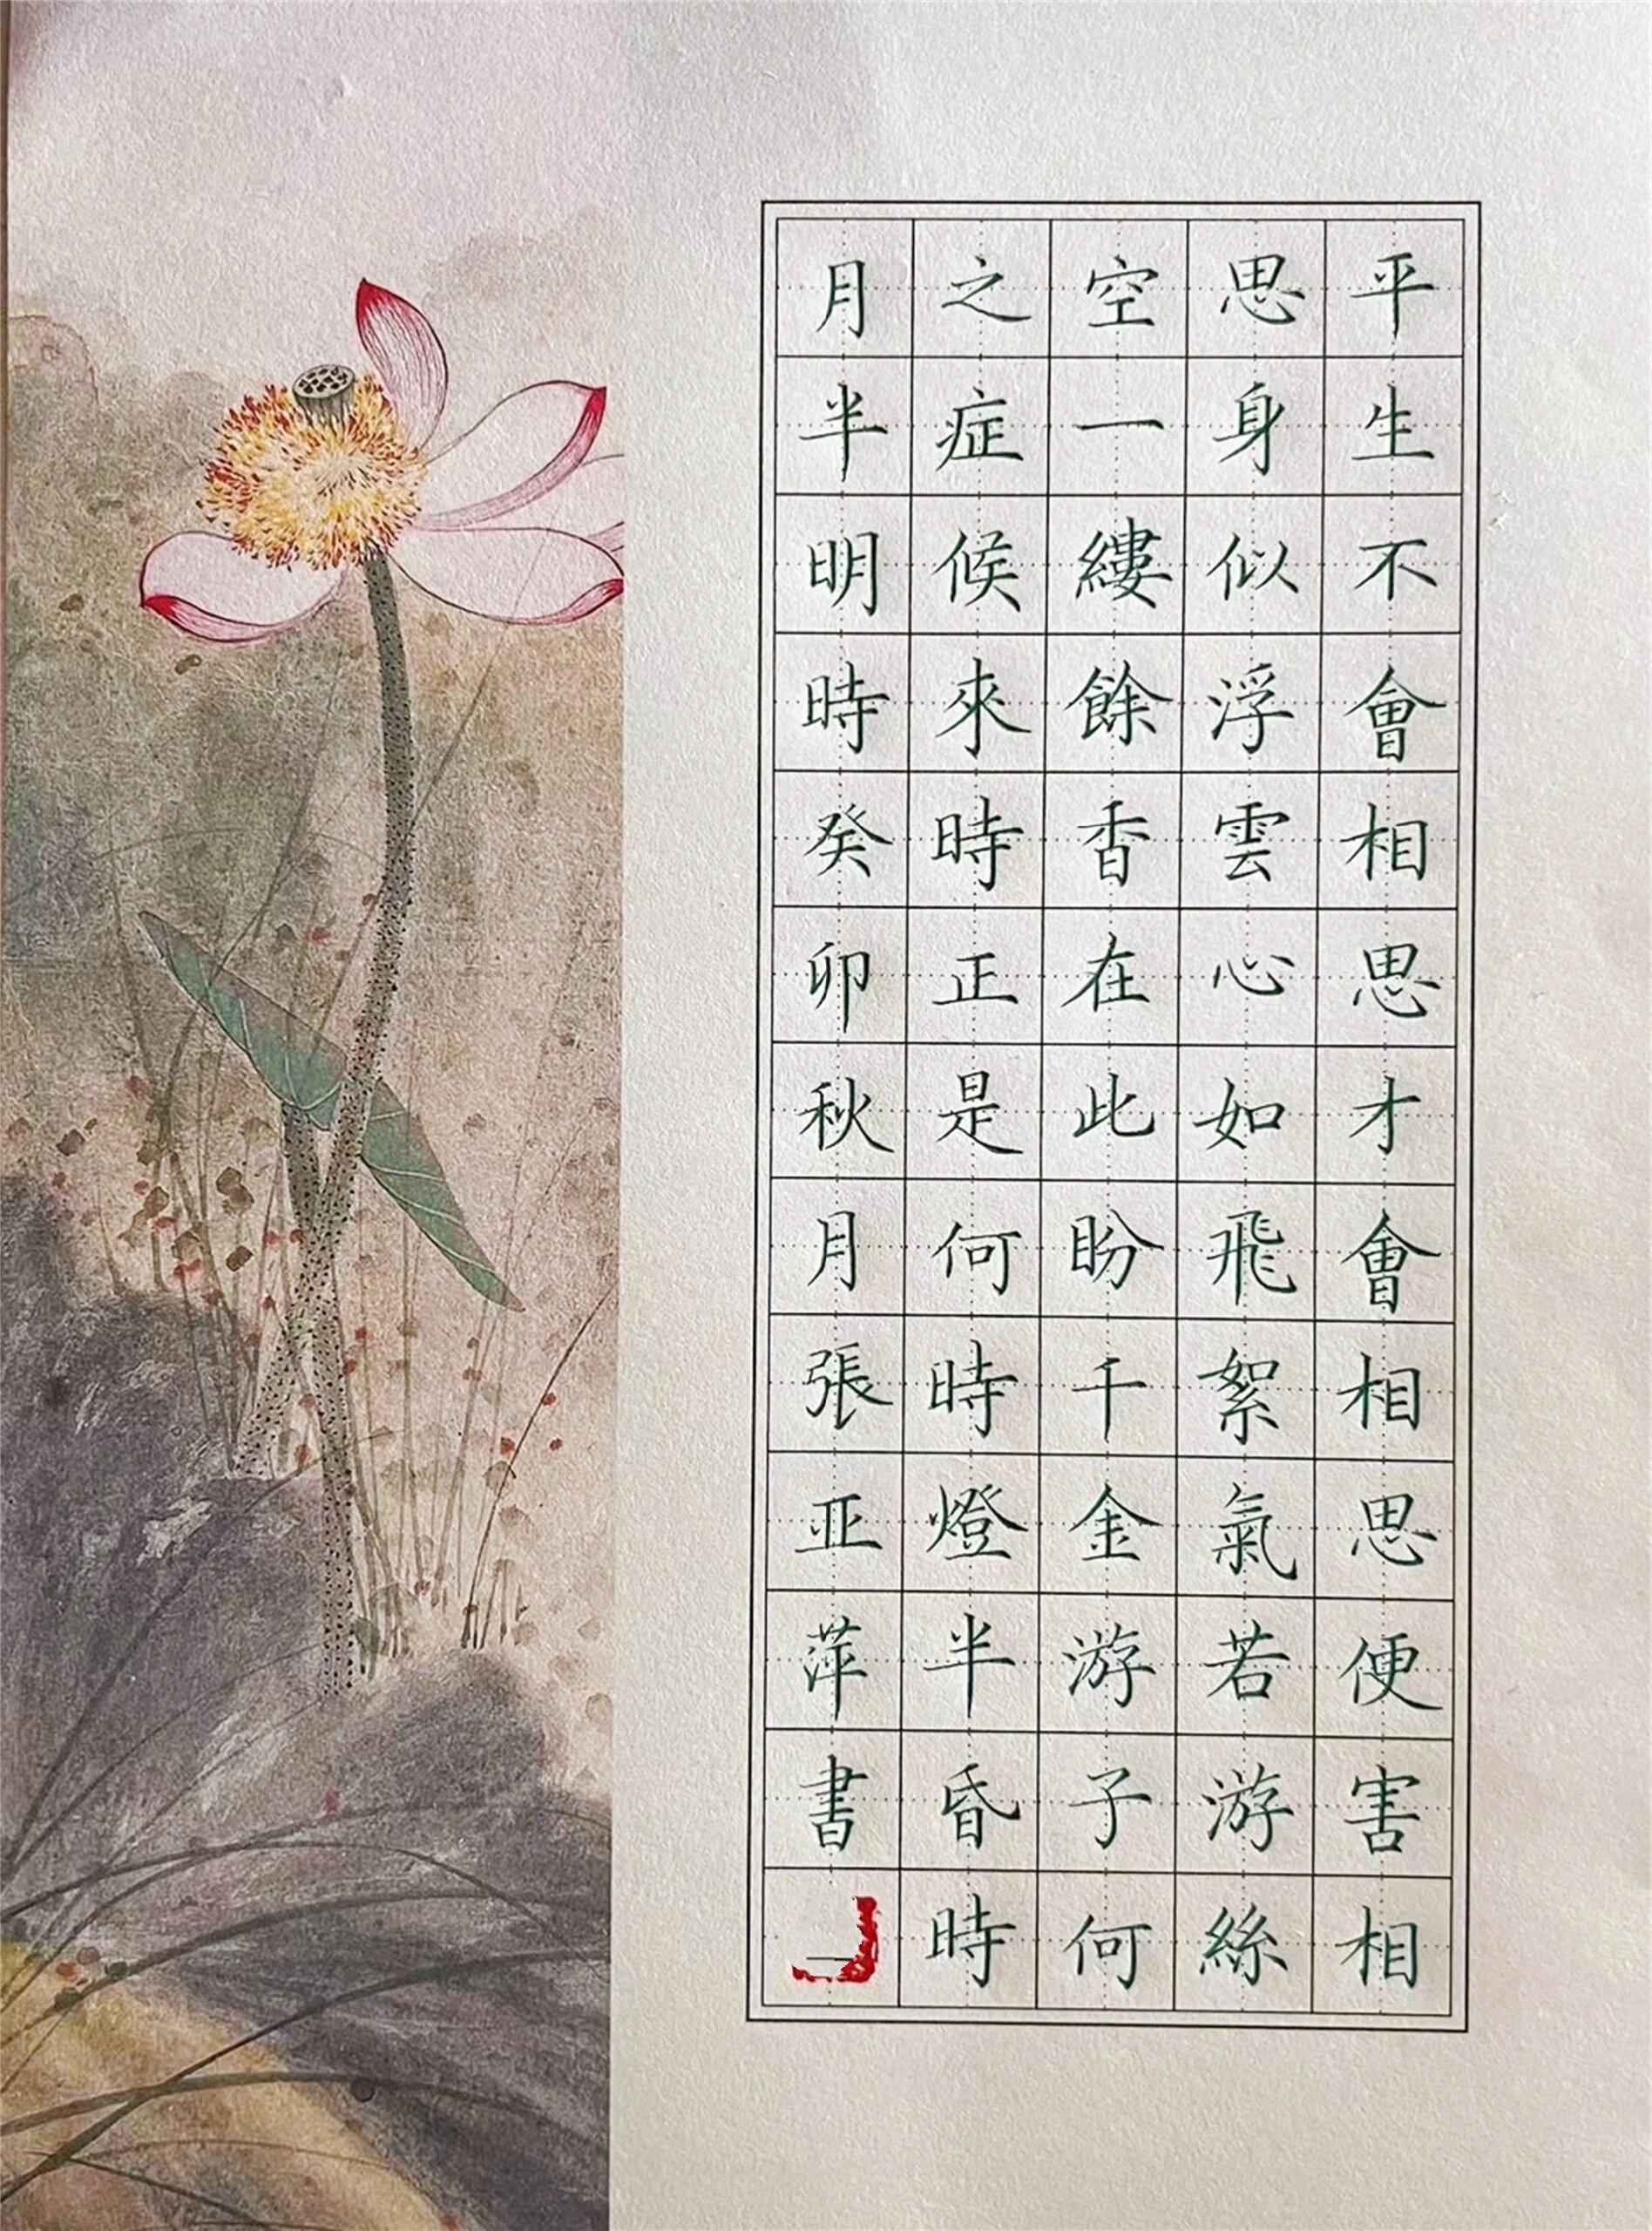 平生不會相思才會相思便害相
思身似浮雲心如飛絮氣若游絲
空一縷餘香在此盼千金游子何
之症候來時正是何時燈半昏時
月半明時癸卯秋月張亚萍書